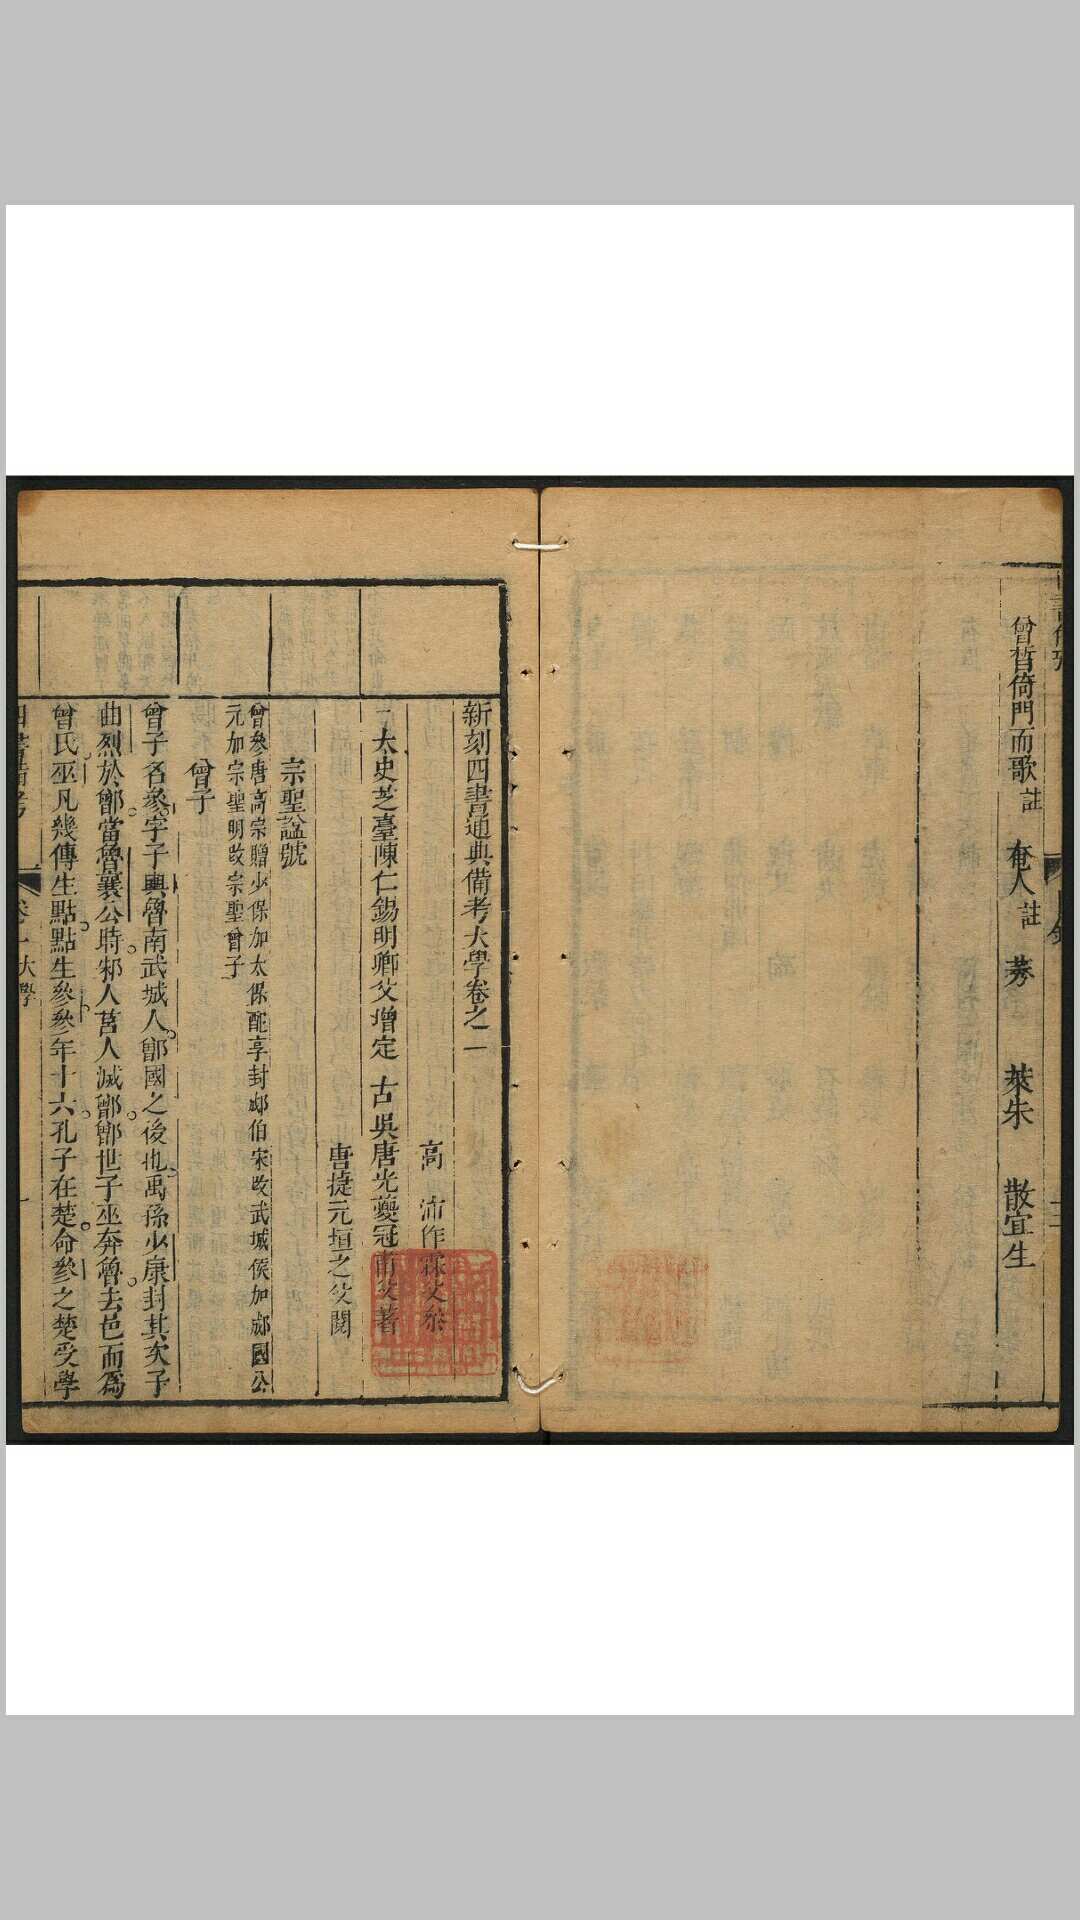 曾晳倚門而歌註　奄人註　莠　萊朱　散宜生
新刻四書通典備考大學卷之一
高　沛作霖父叅
太史芝臺陳仁錫明卿父增定　古吳唐光夔冠甫父著
唐捷元垣之父閱
宗聖諡號
曾叅唐高宗贈少保加太保配享封郕伯宋改武城侯加郕國公
元加宗聖明改宗聖曾子
曾子
曾子名叅字子輿魯南武城人鄫國之後也禹孫少康封其次子
曲烈於鄫當魯襄公時邾人莒人滅鄫鄫世子巫奔魯去邑而爲
曾氏巫凡幾傳生點點生叅叅年十六孔子在楚命叅之楚受學
四書備考　卷一大學　一